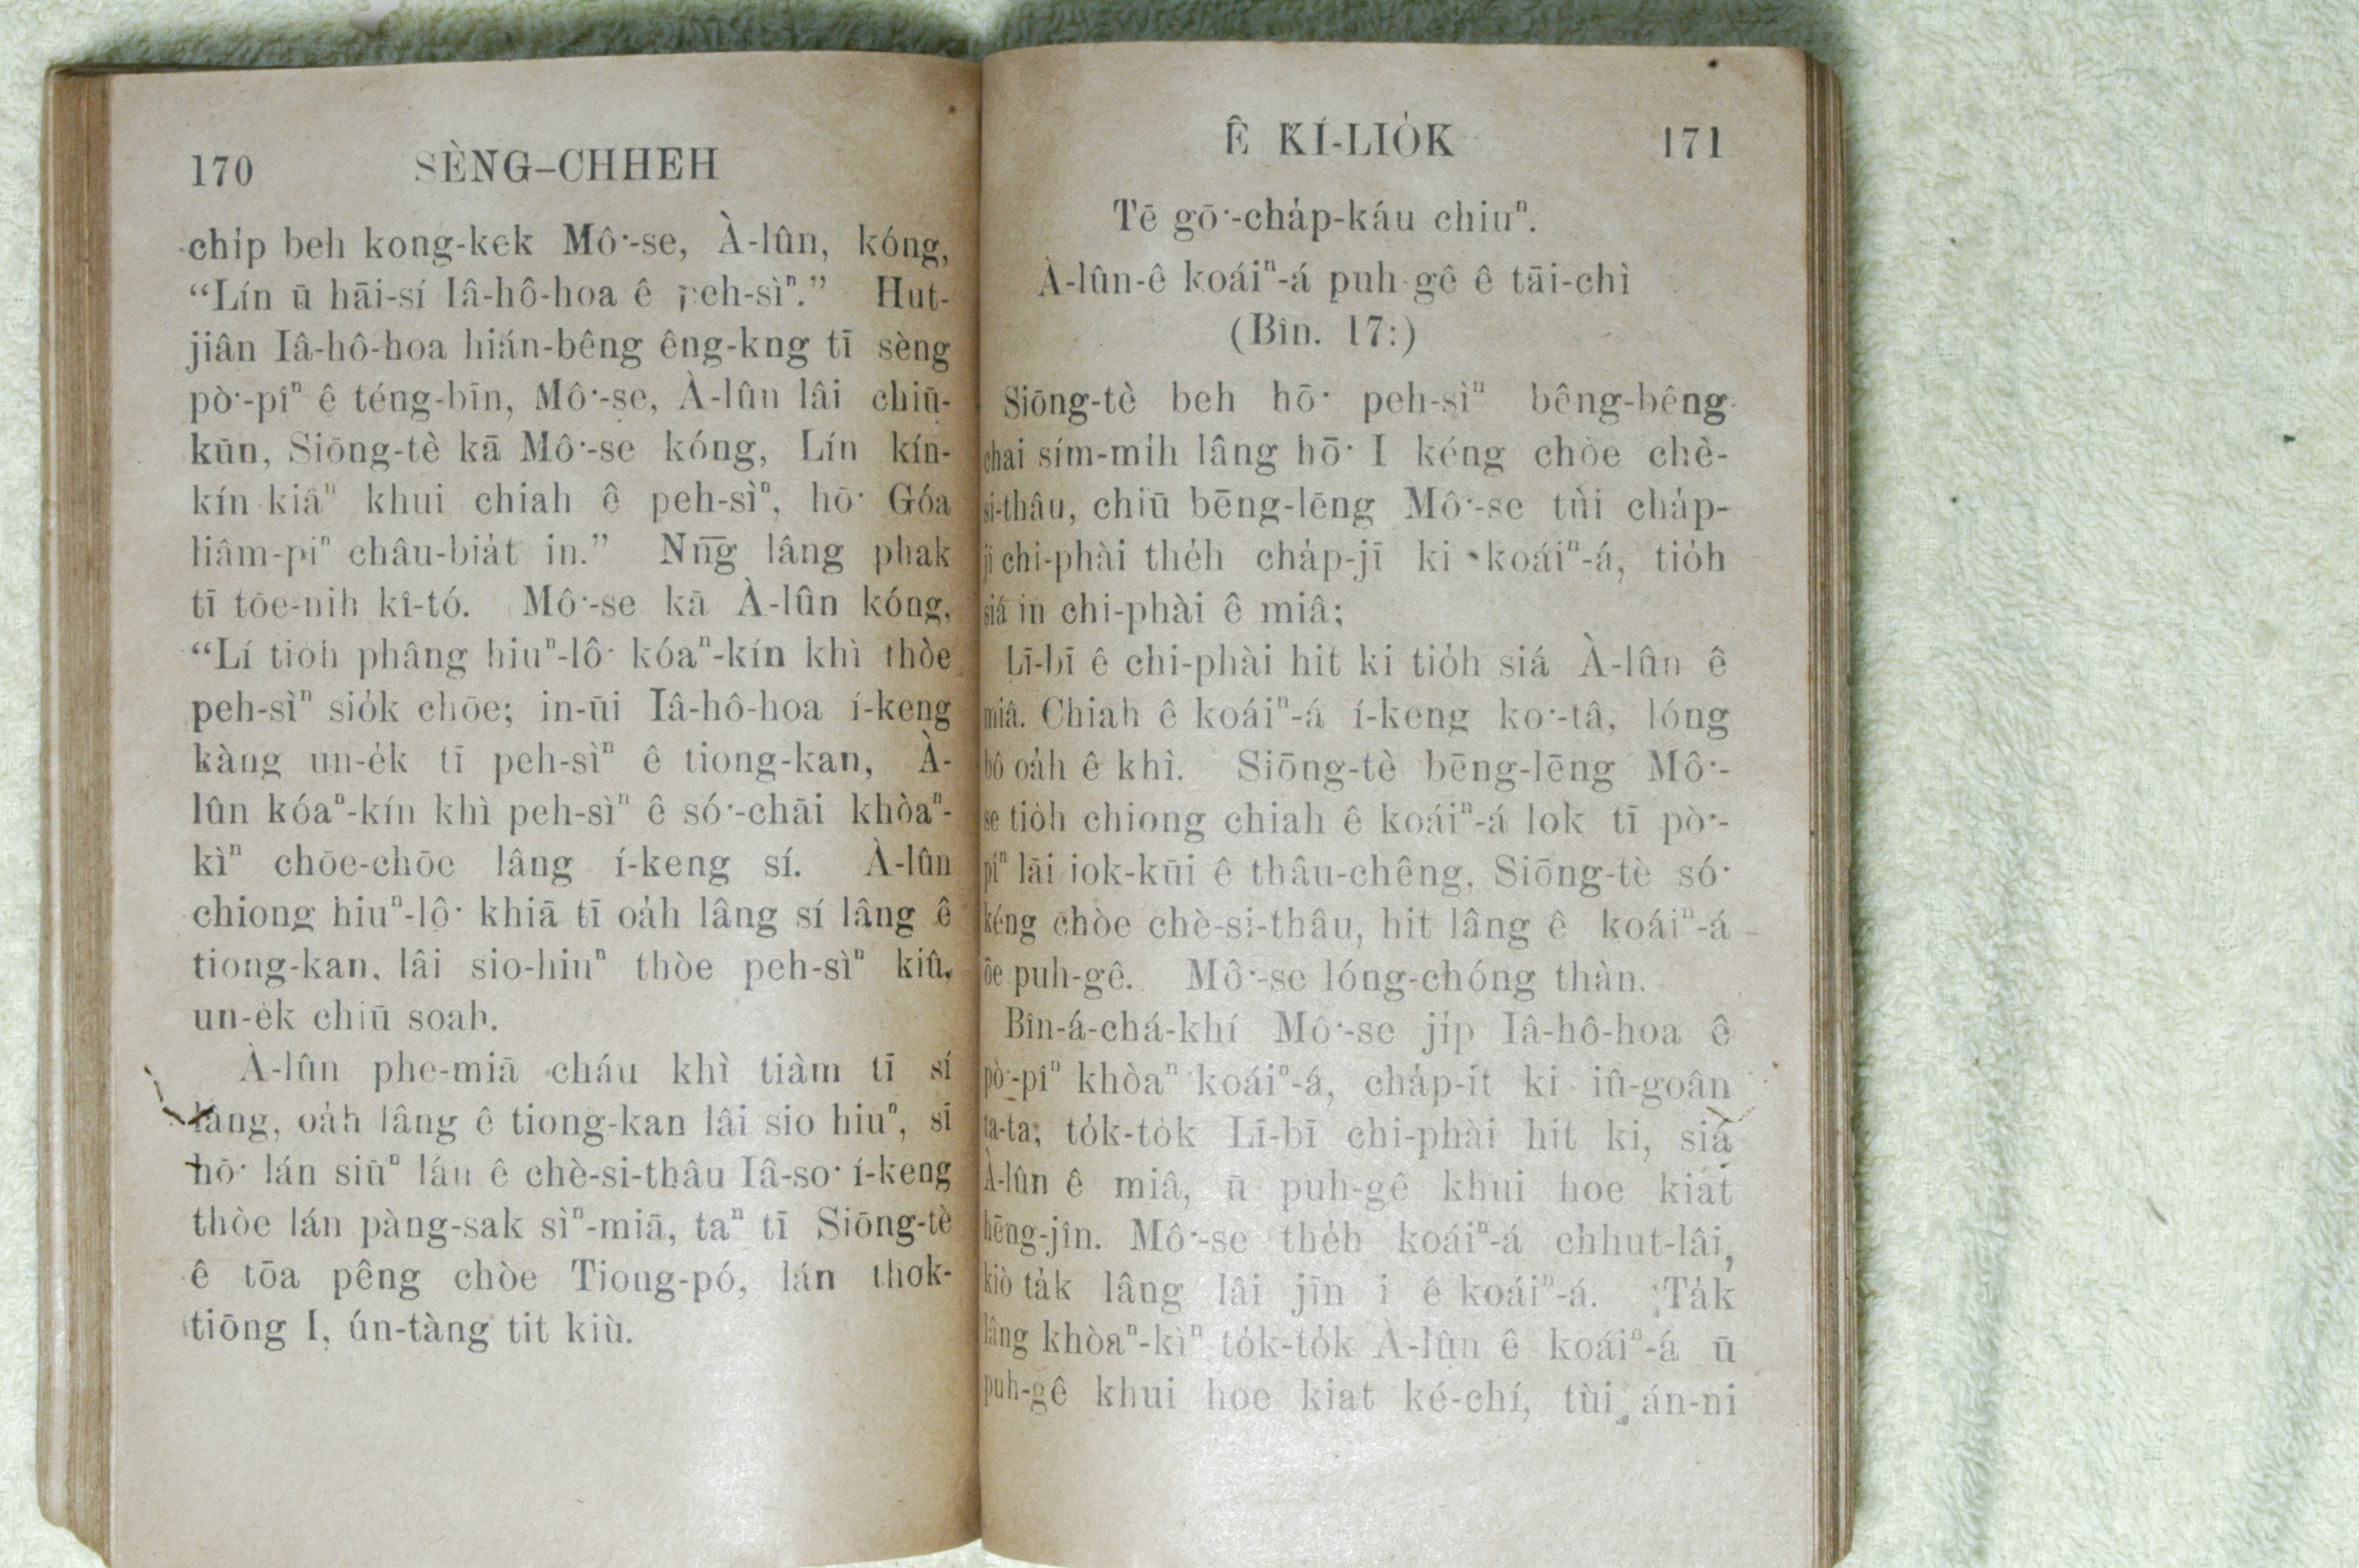 170 SÈNG–CHHEH
chi̍p beh kong-kek Mô͘-se, À-lûn, kóng,
“Lín ū hāi-sí Iâ-hô-hoa ê peh-sìⁿ.” Hut-
jiân Iâ-hô-hoa hián-bêng êng-kng tī sèng
pò͘-pîⁿ ê téng-bīn, Mô͘-se, À-lûn lâi chiū-
kūn, Siōng-tè kā Mô͘-se kóng, Lín kín-
kín kiâⁿ khui chiah ê peh-sìⁿ, hō͘ Góa
liâm-piⁿ châu-bia̍t in.” Nn̄g lâng phak
tī tōe-nih kî-tó. Mô͘-se kā À-lûn kóng,
“Lí tio̍h phâng hiuⁿ-lô͘ kóaⁿ-kín khì thòe
peh-sìⁿ sio̍k chōe; in-ūi Iâ-hô-hoa í-keng
kàng un-e̍k tī peh-sìⁿ ê tiong-kan, À-
lûn kóaⁿ-kín khì peh-sìⁿ ê só͘-chāi khòaⁿ-
kìⁿ chōe-chōe lâng í-keng sí. À-lûn
chiong hiuⁿ-lô͘ khiā tī oa̍h lâng sí lâng ê
tiong-kan, lâi sio-hiuⁿ thòe peh-sìⁿ kiû,
un-e̍k chiū soah.
À-lûn phe-miā cháu khì tiàm tī sí
lâng, oa̍h lâng ê tiong-kan lâi sio hiuⁿ, sī
hō͘ lán siūⁿ lán ê chè-si-thâu Iâ-so͘ í-keng
thòe lán pàng-sak sìⁿ-miā, taⁿ tī Siōng-tè
ê tōa pêng chòe Tiong-pó, lán thok-
tiōng I, ún-tàng tit kiù.
Ê KÍ-LIO̍K 171
Tē gō͘-cha̍p-káu chiuⁿ.
À-lûn-ê koáiⁿ-á puh-gê ê tāi-chì
(Bîn. 17:)
Siōng-tè beh hō͘ peh-sìⁿ bêng-bêng
chai sím-mi̍h lâng hō͘ I kéng chòe chè-
si-thâu, chiū bēng-lēng Mô͘-se tùi cha̍p-
jī chi-phài the̍h cha̍p-jī ki koáiⁿ-á, tio̍h
siá in chi-phài ê miâ;
Lī-bī ê chi-phài hit ki tio̍h siá À-lûn ê
miâ. Chiah ê koáiⁿ-á í-keng ko͘-tâ, lóng
bô oa̍h ê khì. Siōng-tè bēng-lēng Mô͘-
se tio̍h chiong chiah ê koáiⁿ-á lok tī pò͘-
pîⁿ lāi iok-kūi ê thâu-chêng, Siōng-tè só͘
kéng chòe chè-si-thâu, hit lâng ê koáiⁿ-á
ōe puh-gê. Mô͘-se lóng-chóng thàn.
Bîn-á-chá-khí Mô͘-se ji̍p Iâ-hô-hoa ê
pò͘-pîⁿ khòaⁿ koáiⁿ-á, cha̍p-it ki iû-goân
ta-ta; to̍k-to̍k Lī-bī chi-phài hit ki, siá
À-lûn ê miâ, ū puh-gê khui hoe kiat
hēng-jîn. Mô͘-se the̍h koáiⁿ-á chhut-lâi,
kiò ta̍k lâng lâi jīn i ê koáiⁿ-á. Ta̍k
lâng khòaⁿ-kìⁿ to̍k-to̍k À-lûn ê koáiⁿ-á ū
puh-gê khui hoe kiat ké-chí, tùi án-ni